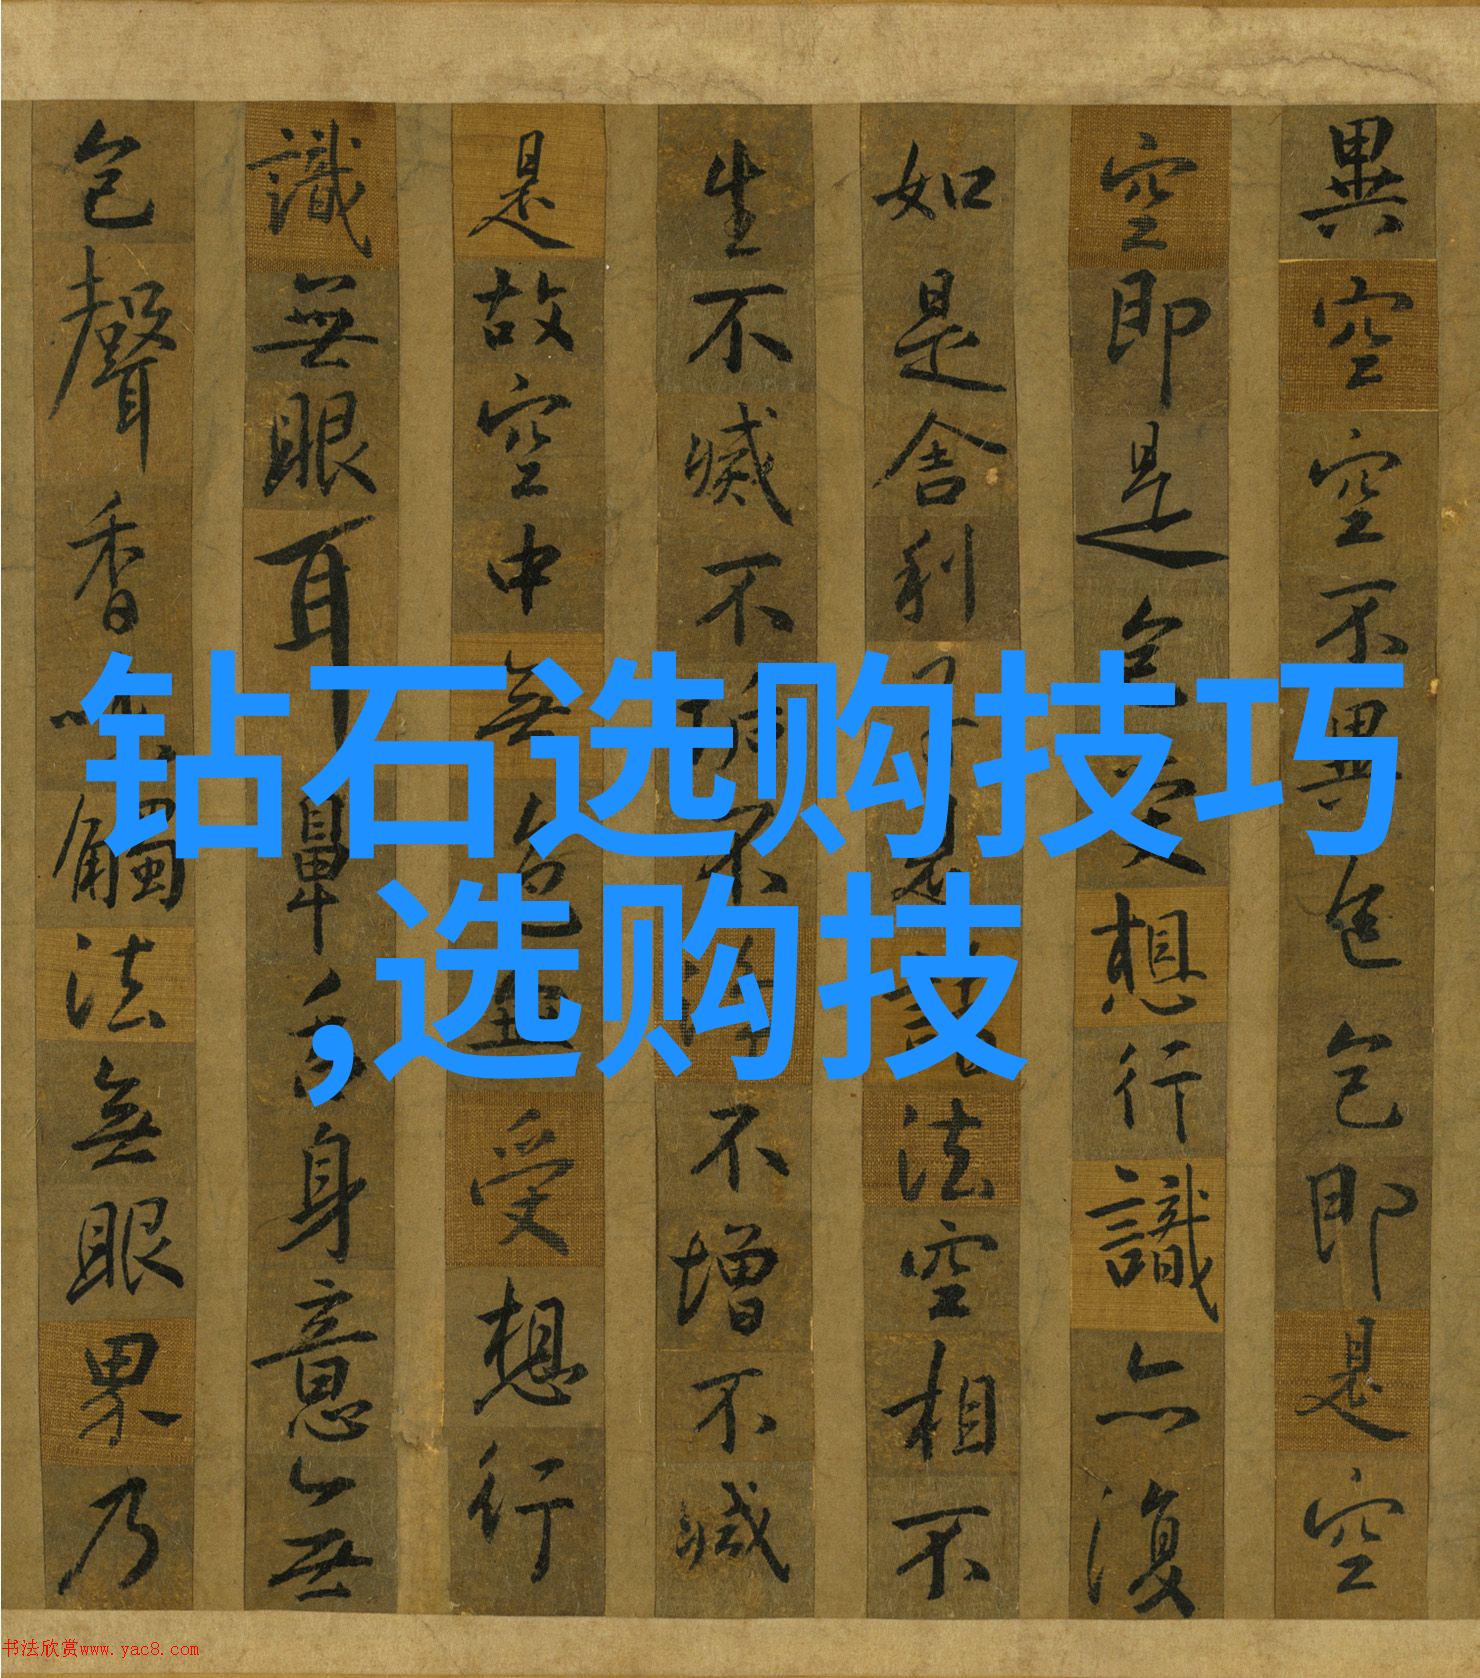 異空空不異色色即是空
空即是色受想行識亦復
如是舍利子是諸法空相不
生不滅不垢不淨不增不減
是故空中無色無受想行
識無眼耳鼻舌身意無
色聲香味觸法無眼界乃
钻石选购技巧
,选购技
书法欣赏www.yac8.com